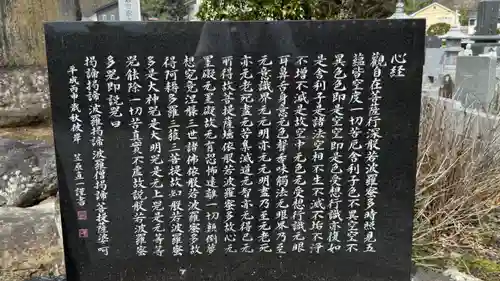 心経
觀自在菩薩行深般若波羅蜜多時照見五
蘊皆空度一切苦厄舍利子色不異空空不
異色色即是空空即是色受想行識亦復如
是舍利子是諸法空相不生不滅不垢不淨
不增不減是故空中无色无受想行識无眼
耳鼻舌身意无色聲香味觸法无眼界乃至
无意識界无无明亦无无明盡乃至无老死
亦无老死盡无苦集滅道无智亦无得以无
所得故菩提薩埵依般若波羅蜜多故心无
罣礙无罣礙故无有恐怖遠離一切顛倒夢
想究竟涅槃三世諸佛依般若波羅蜜多故
得阿耨多羅三藐三菩提故知般若波羅蜜
多是大神咒是大明咒是无上咒是无等等
咒能除一切苦真實不虚故説般若波羅蜜
多咒即説咒曰
揭諦揭諦 波羅揭諦 波羅僧揭諦 菩提薩婆呵
平成丙申歳秋彼岸 直一謹書